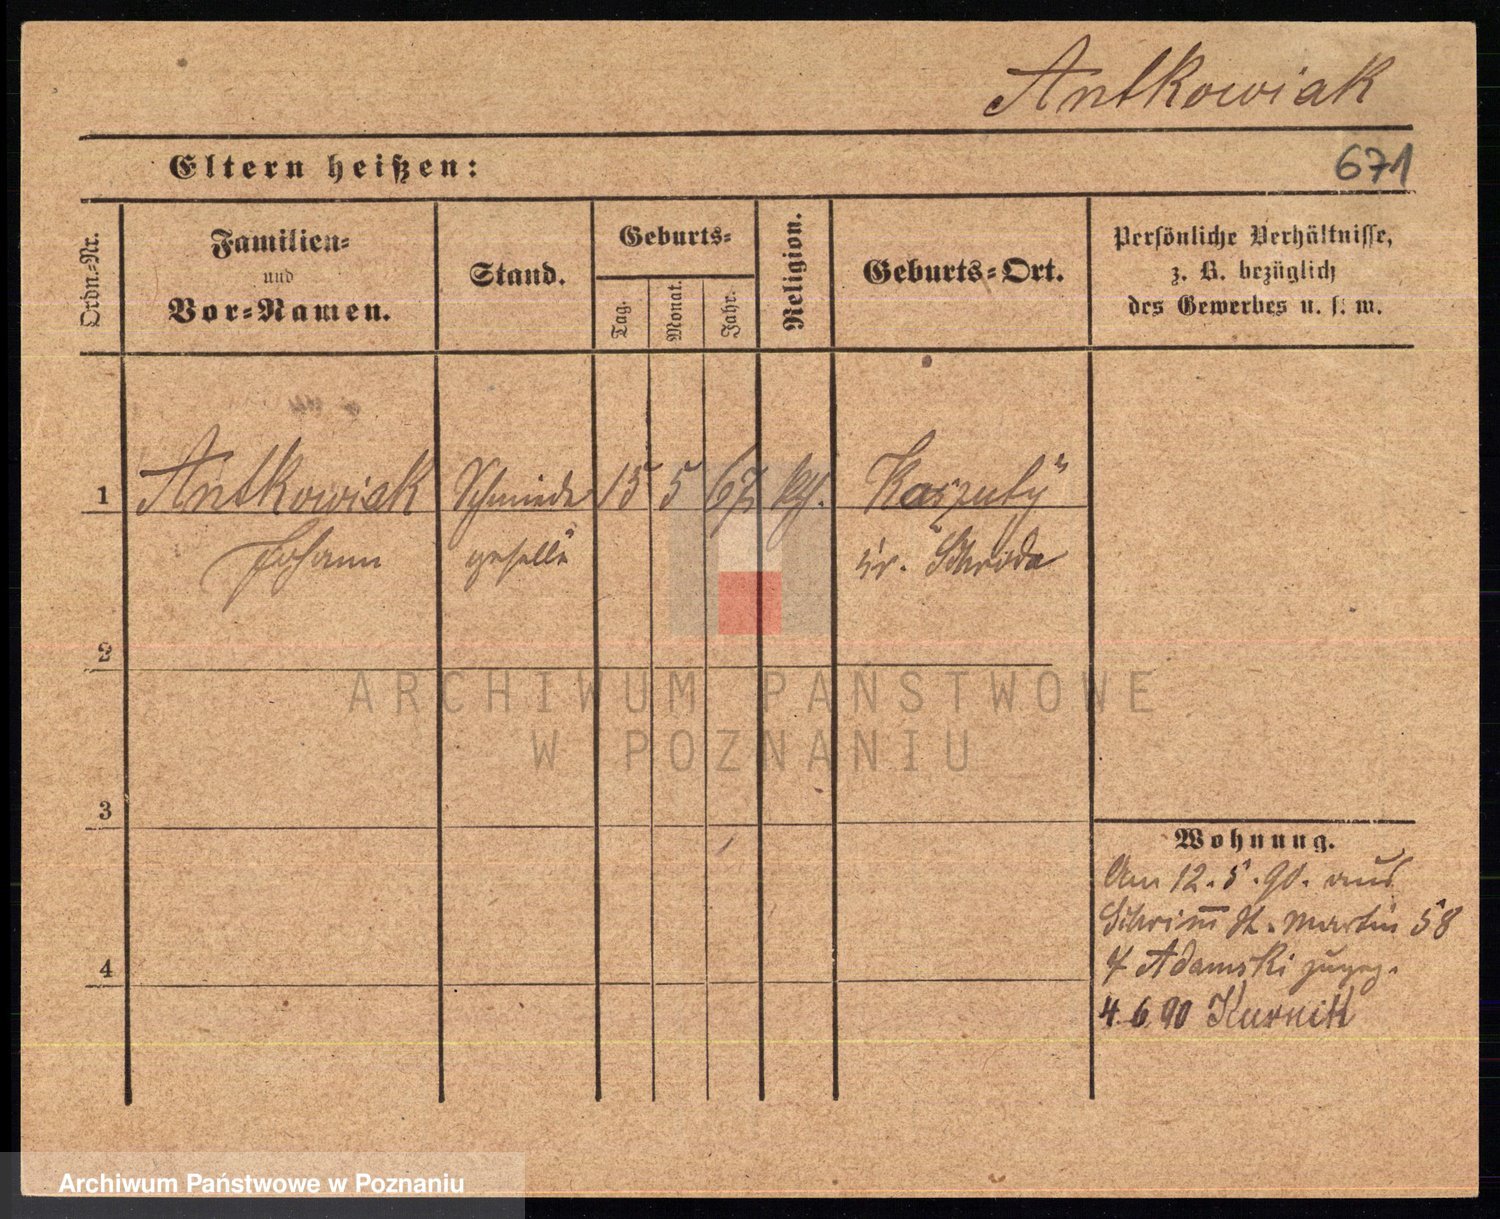 Antkowiak
Eltern heißen:
671
Ordn.-Nr.
Familien-
und
Vor-Namen.
Stand.
Geburts-
Tag.
Monat.
Jahr.
Religion.
Geburts-Ort.
Persönliche Verhältnisse,
z. B. bezüglich
des Gewerbes u. s. w.
1 Antkowiak Schmiede 15 5 67 kth.
Johann geselle Kr. Schroda
2
3
4
Wohnung.
Am 12. 5. 90. aus
Schrimm St. Martin 58
Adamski zugez.
4. 6. 90 Kurnik
ARCHIWUM PAŃSTWOWE
W POZNANIU
Archiwum Państwowe w Poznaniu